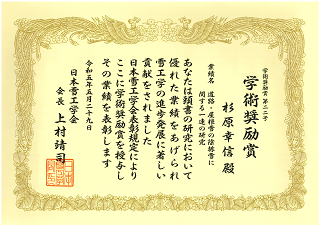 学術奨励賞 第二二号
学術奨励賞
杉原幸信 殿
業績名 道路・屋根雪の陰排雪に
関する一連の研究
あなたは頭書の研究において
優れた業績をあげられ
雪工学の進歩発展に著しい
貢献をされました
日本雪工学会表彰規定により
ここに学術奨励賞を授与し
その業績を表彰します
令和五年五月二十九日
日本雪工学会
会長 上村靖司